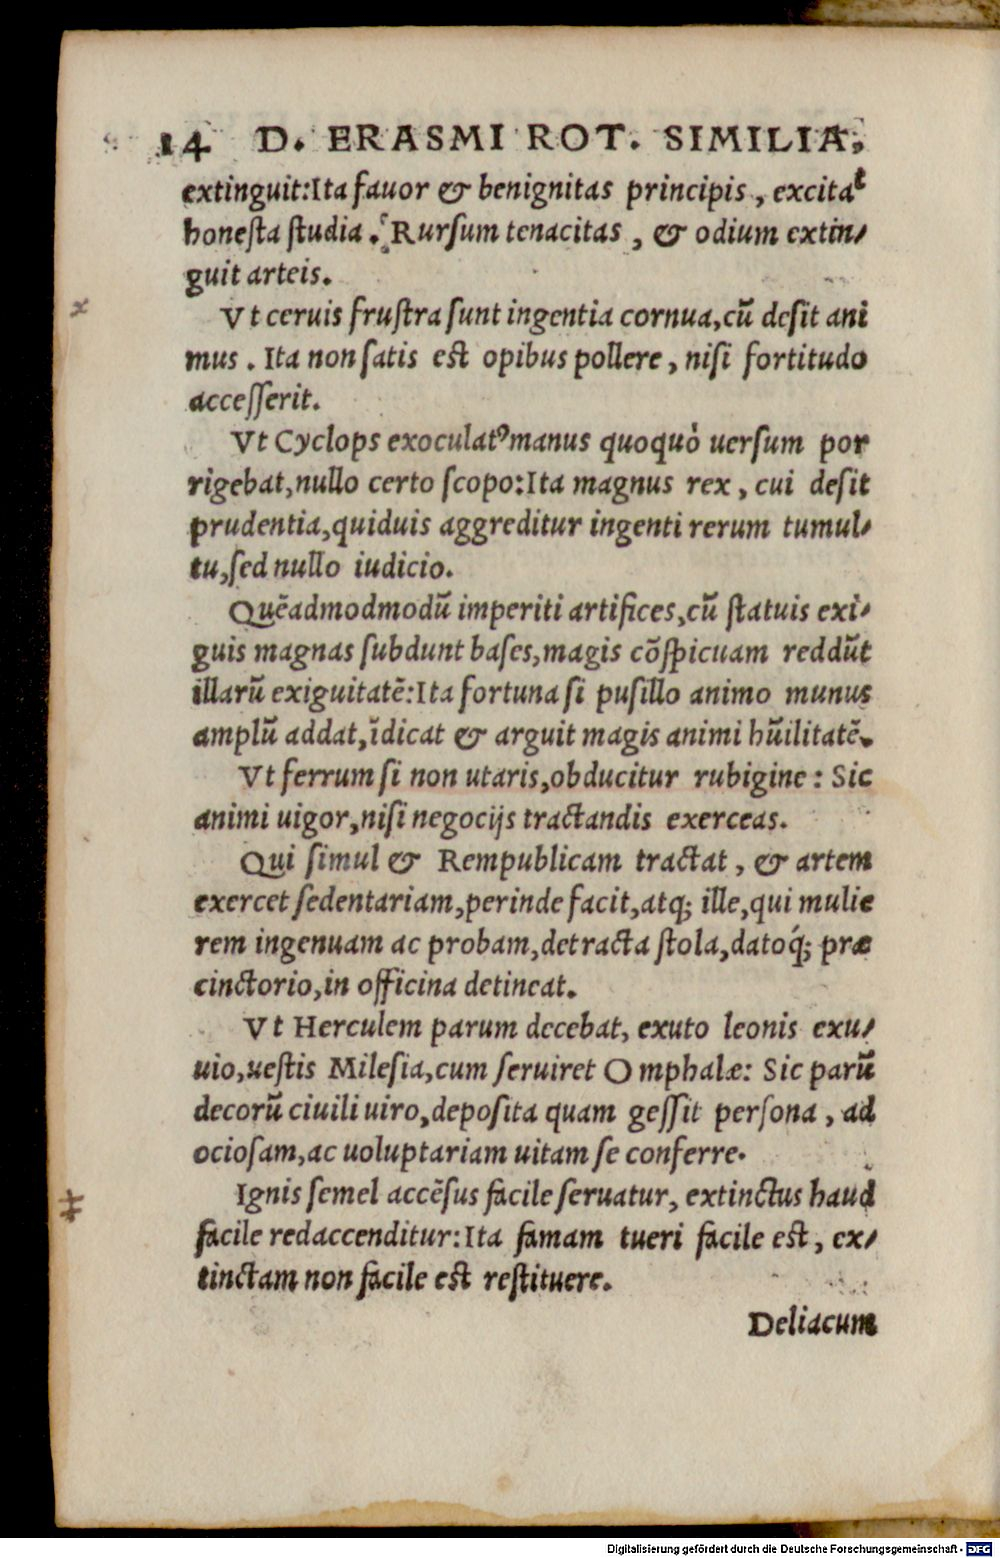 14 D. ERASMI ROT. SIMILIA,
extinguit:Ita fauor & benignitas principis, excitat
honeſta ſtudia. Rurſum tenacitas, & odium extin/
guit arteis.
Vt ceruis fruſtra ſunt ingentia cornua,cū deſit ani
mus. Ita non ſatis est opibus pollere, niſi fortitudo
acceſſerit.
Vt Cyclops exoculatꝰ manus quoquò uerſum por
rigebat,nullo certo ſcopo:Ita magnus rex, cui deſit
prudentia,quiduis aggreditur ingenti rerum tumul/
tu,ſed nullo iudicio.
Quēadmodmodū imperiti artifices,cū ſtatuis exi/
guis magnas ſubdunt baſes,magis cōſpicuam reddūt
illarū exiguitatē:Ita fortuna ſi puſillo animo munus
amplū addat,īdicat & arguit magis animi hūilitatē.
Vt ferrum ſi non utaris,obducitur rubigine: Sic
animi uigor,niſi negocijs tractandis exerceas.
Qui ſimul & Rempublicam tractat, & artem
exercet ſedentariam,perinde facit,atq; ille,qui mulie
rem ingenuam ac probam,detracta ſtola,datoq́; præ
cinctorio,in officina detineat.
Vt Herculem parum decebat, exuto leonis exu/
uio,ueſtis Mileſia,cum ſeruiret Omphalæ: Sic parū
decorū ciuili uiro,depoſita quam geſſit perſona, ad
ocioſam,ac uoluptariam uitam ſe conferre.
Ignis ſemel accēſus facile ſeruatur, extinctus haud
facile redaccenditur:Ita famam tueri facile est, ex/
tinctam non facile est reſtituere.
Deliacum
Digitalisierung gefördert durch die Deutsche Forschungsgemeinschaft - DFG